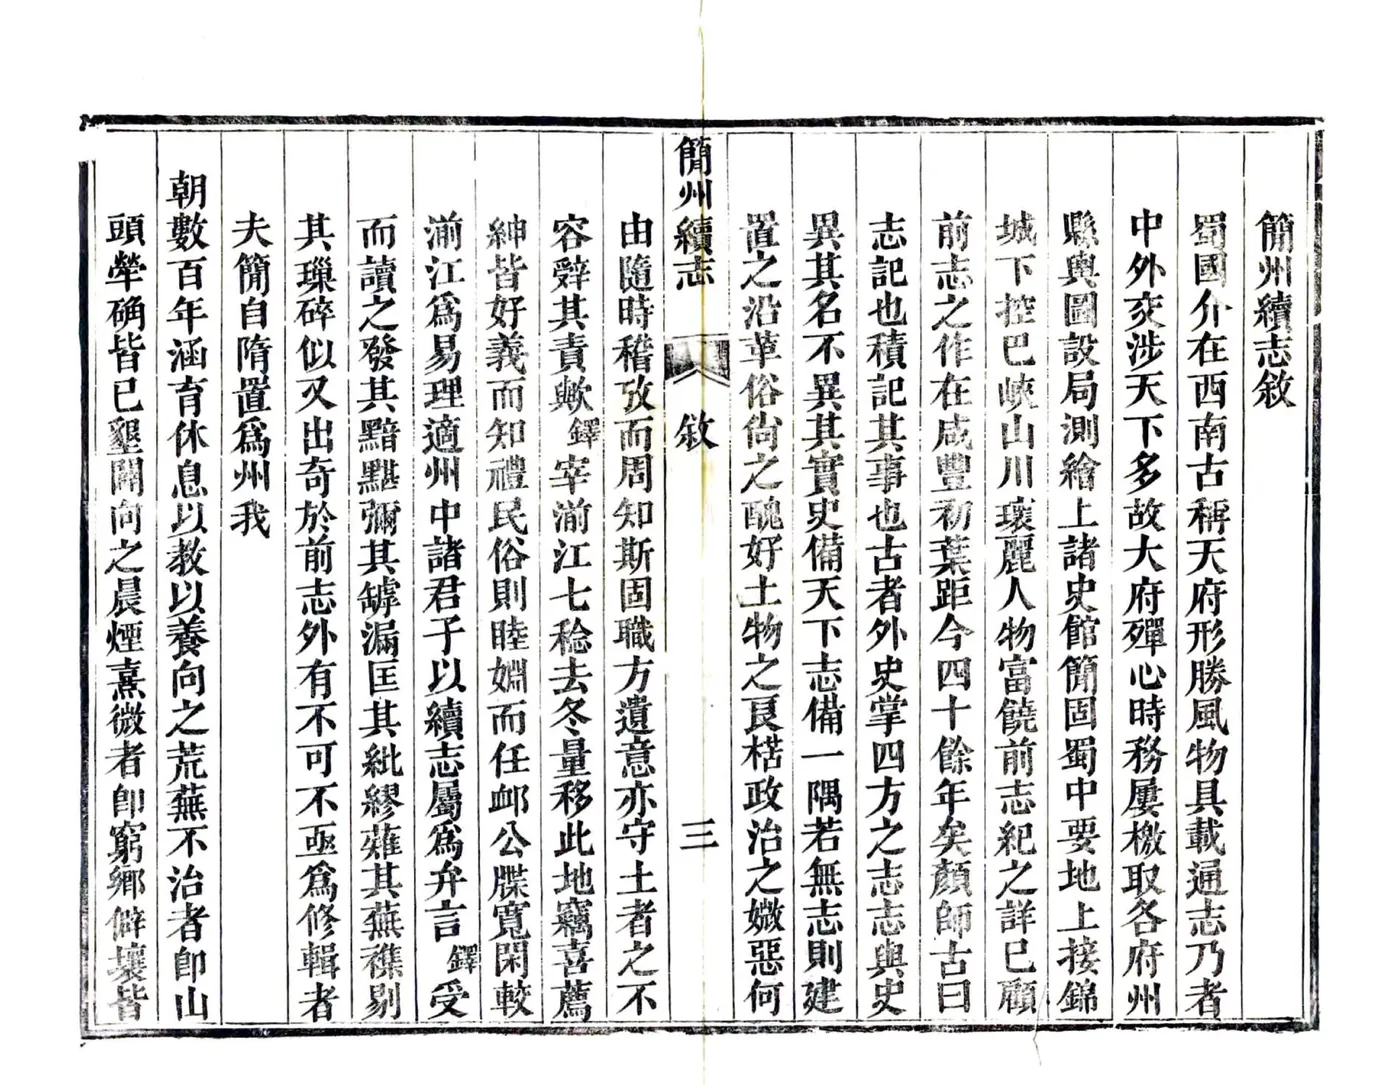 簡州續志敘
蜀國介在西南古稱天府形勝風物具載通志乃者
中外交涉天下多故大府殫心時務屢檄取各府州
縣輿圖設局測繪上諸史館簡固蜀中要地上接錦
城下控巴峽山川瓌麗人物富饒前志紀之詳已顧
前志之作在咸豐初葉距今四十餘年矣顏師古曰
志記也積記其事也古者外史掌四方之志志與史
異其名不異其實史備天下志備一隅若無志則建
置之沿革俗尙之醜好土物之良楛政治之媺惡何
簡州續志
敘
三
由隨時稽攷而周知斯固職方遺意亦守土者之不
容辤其責歟鐸宰湔江七稔去冬量移此地竊喜薦
紳皆好義而知禮民俗則睦婣而任䘏公牒寬閑較
湔江爲易理適州中諸君子以續志屬爲弁言鐸受
而讀之發其黯黮彌其罅漏匡其紕繆薙其蕪穢剔
其璅碎似又出奇於前志外有不可不亟爲修輯者
夫簡自隋置爲州我
朝數百年涵育休息以教以養向之荒蕪不治者卽山
頭犖确皆已墾闢向之晨煙熹微者卽窮鄉僻壤皆